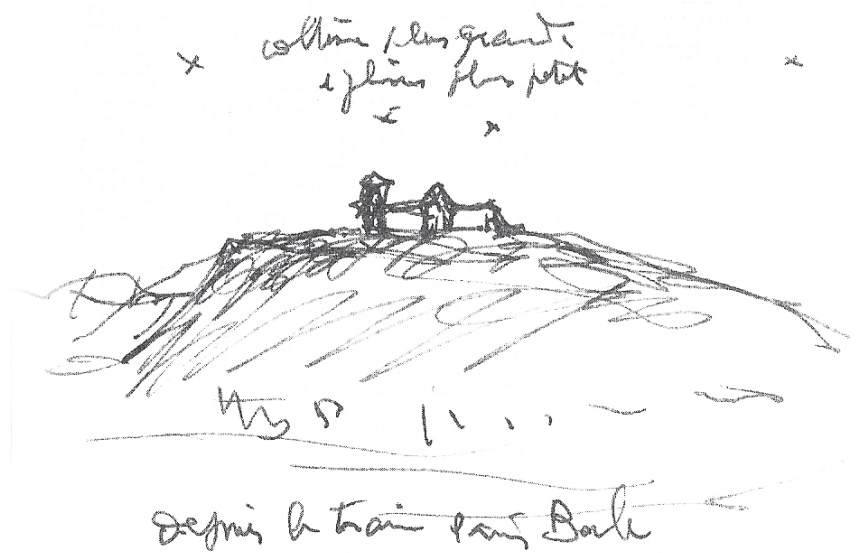 colline plus grande
église plus petit
depuis le train Paris Basle